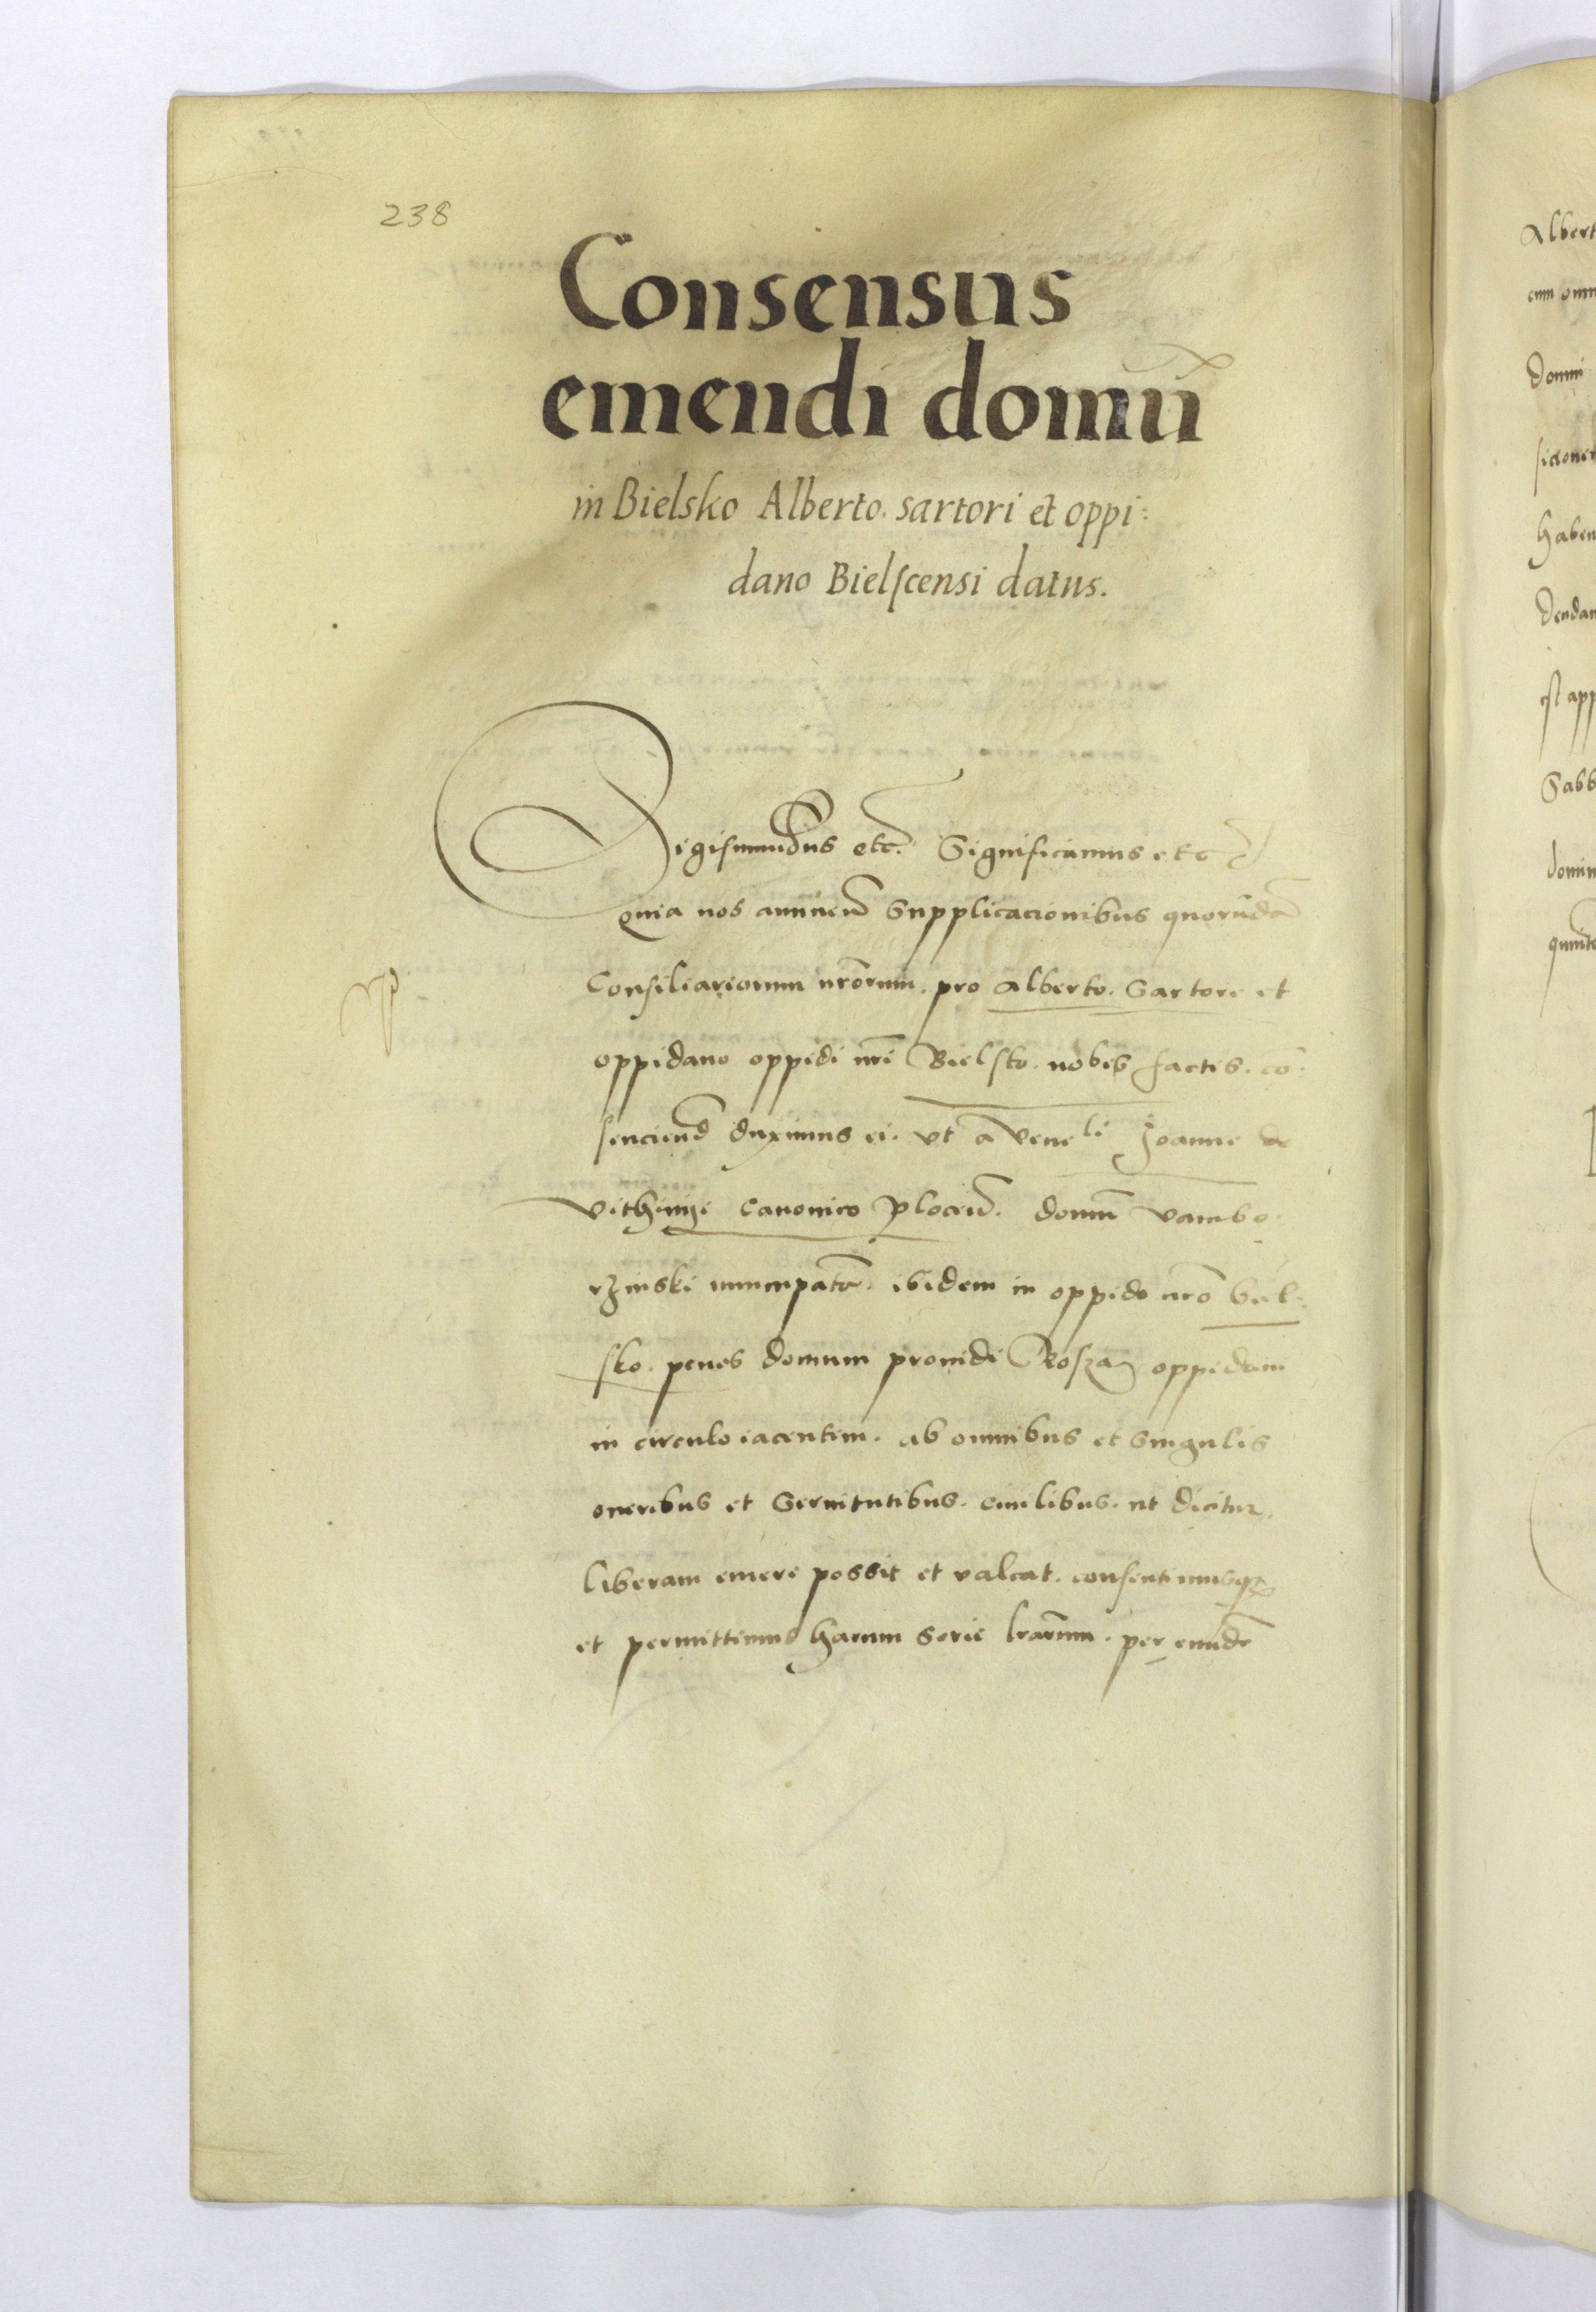 238
Consensus
emendi domū
in Bielsko Alberto. sartori et oppi:
dano Bielscensi datus.
Sigismundus etc. Significamus etc
quia nos annuen̄ Supplicacionibus quorūdā
Consiliariorum nr̄orum. pro Alberto. Sartore et
oppidano oppidi nr̄i Bielsko. nobis factis. cō:
senciend̄ duximus ei. vt a Veneli Joanne de
canonico Plocen̄. domū vambo
rzinski nuncupatā. ibidem in oppido nr̄o biel:
sko. penes domum prouidi oppidani
in circulo iacentem. ab omnibus et singulis
oneribus et seruitutibus. ciuilibus. ut dicitur.
liberam emere possit et valeat. consentimusq3
et permittimus harum serie lr̄arum. per eundē
Albert
cum omn
domin
haben
dendam
est app
Sabb
domin